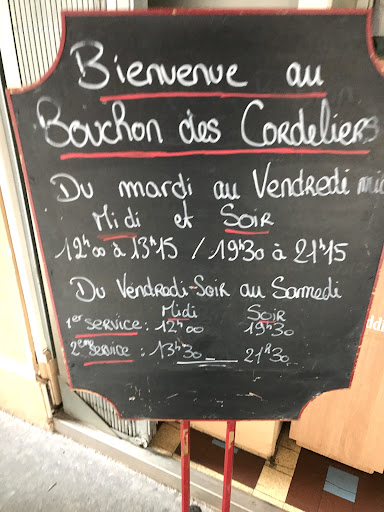 Bienvenue au
Bouchon des Cordeliers
Du mardi au Vendredi midi
Midi et Soir
12h00 à 13h15 / 19h30 à 21h15
Du Vendredi-Soir au Samedi
Midi Soir
1er service : 12h00 19h30
2eme service : 13h30 21h30